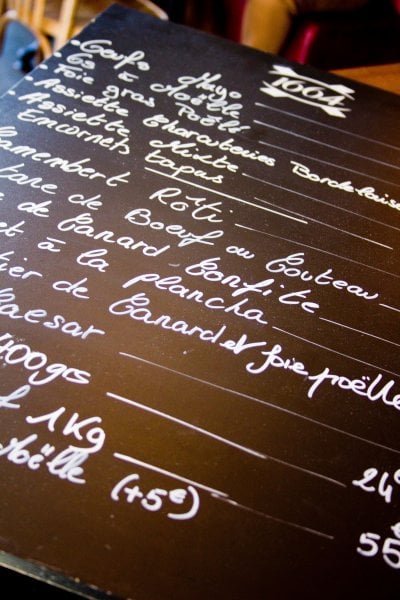 1664
Oeufs Mayo
Os à Moëlle
Foie gras Poëlé
Assiette Charcuteries Bordelaise
Assiette Mixte
Encornets tapas
Camembert Rôti
de Boeuf au Couteau
de Canard Confite
à la plancha
de Canard et foie poëllé
Caesar
400grs
1Kg
Moëlle (+5€)
24
55